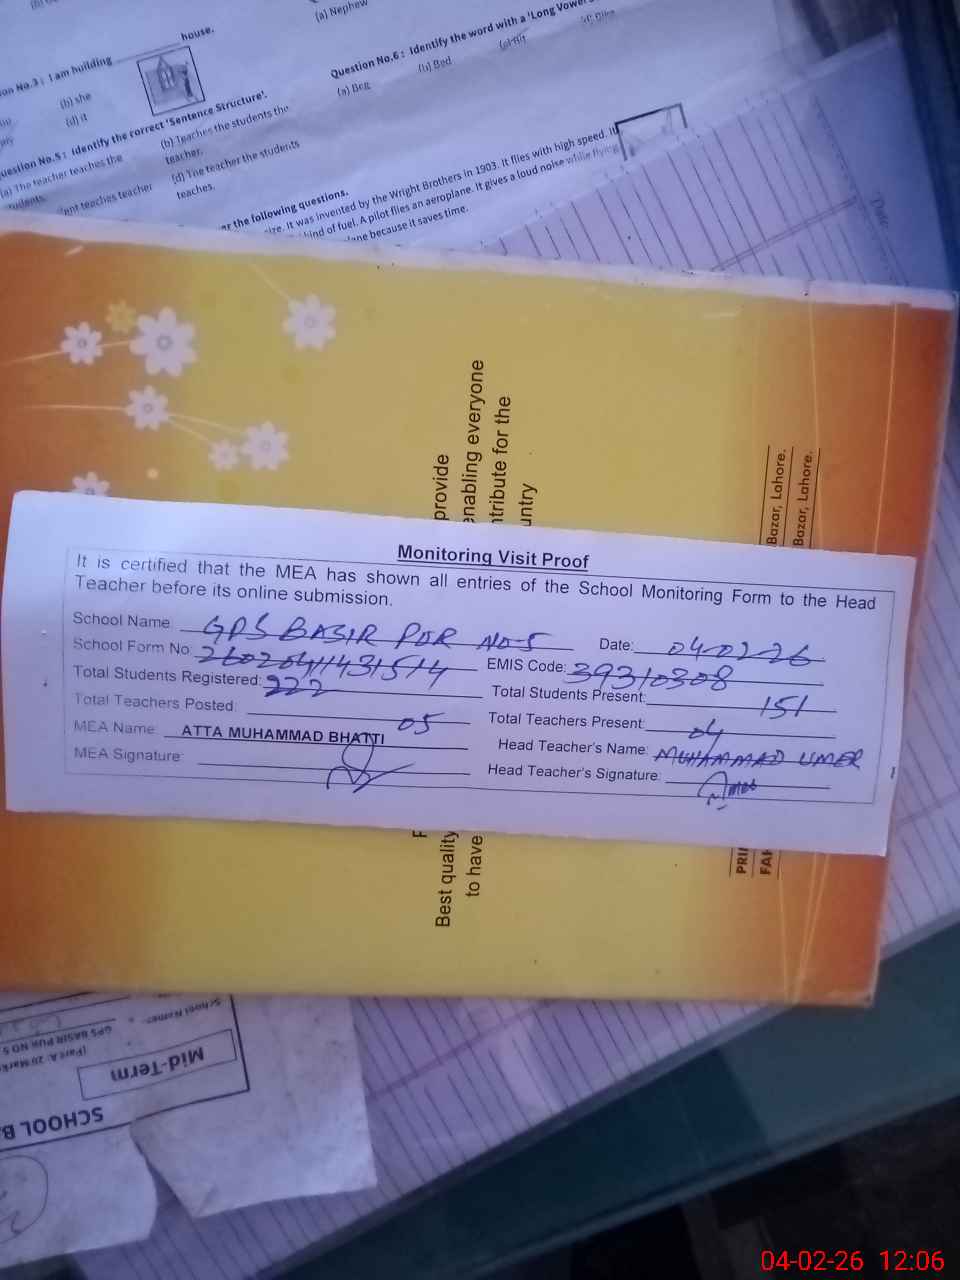 (a) Nephew
house.
I am building
(b) she
(d) it
Question No.6 : Identify the word with a 'Long Vowel
(a) Beg
(b) Bed
Identify the correct 'Sentence Structure'.
(a) The teacher teaches the
(b) Teaches the students the
teacher.
teaches teacher
(d) The teacher the students
teaches.
the following questions.
It was invented by the Wright Brothers in 1903. It flies with high speed. It
kind of fuel. A pilot flies an aeroplane. It gives a loud noise while flying
because it saves time.
Date
provide
enabling everyone
for the
Best quality
to have
Bazar, Lahore.
Bazar, Lahore.
Monitoring Visit Proof
It is certified that the MEA has shown all entries of the School Monitoring Form to the Head
Teacher before its online submission.
School Name: GPS BASIR PUR NO-5 Date: 04-02-26
School Form No: 26020411431514 EMIS Code: 39310308
Total Students Registered: 222 Total Students Present: 151
Total Teachers Posted: 05 Total Teachers Present: 04
MEA Name: ATTA MUHAMMAD BHATTI Head Teacher's Name: MUHAMMAD UMER
MEA Signature: Head Teacher's Signature:
School Name:
GPS BASIR PUR NO 5
Mid-Term
SCHOOL
04-02-26 12:06